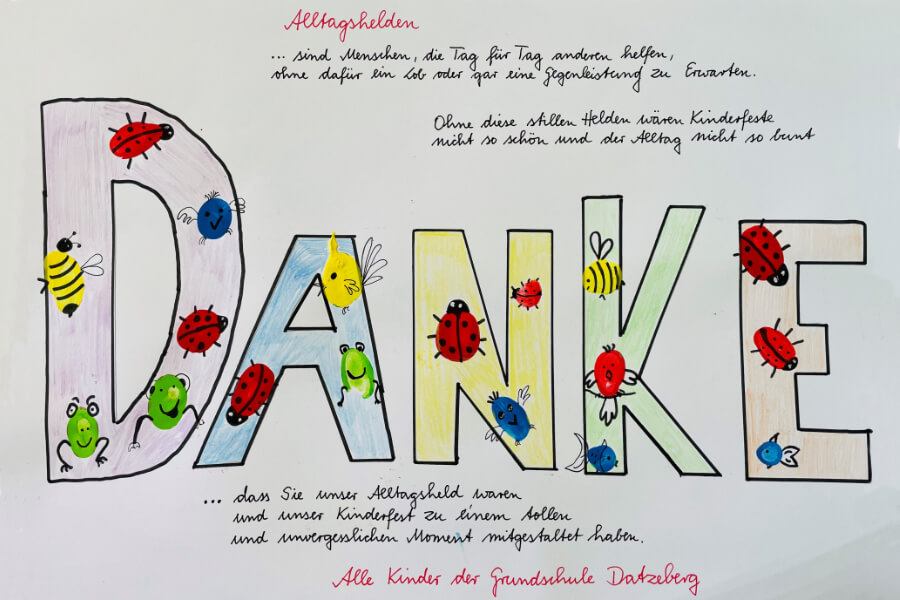 Alltagshelden
... sind Menschen, die Tag für Tag anderen helfen,
ohne dafür ein Lob oder gar eine Gegenleistung zu Erwarten.
Ohne diese stillen Helden wären Kinderfeste
nicht so schön und der Alltag nicht so bunt
DANKE
... dass Sie unser Alltagsheld waren
und unser Kinderfest zu einem tollen
und unvergesslichen Moment mitgestaltet haben.
Alle Kinder der Grundschule Datzeberg